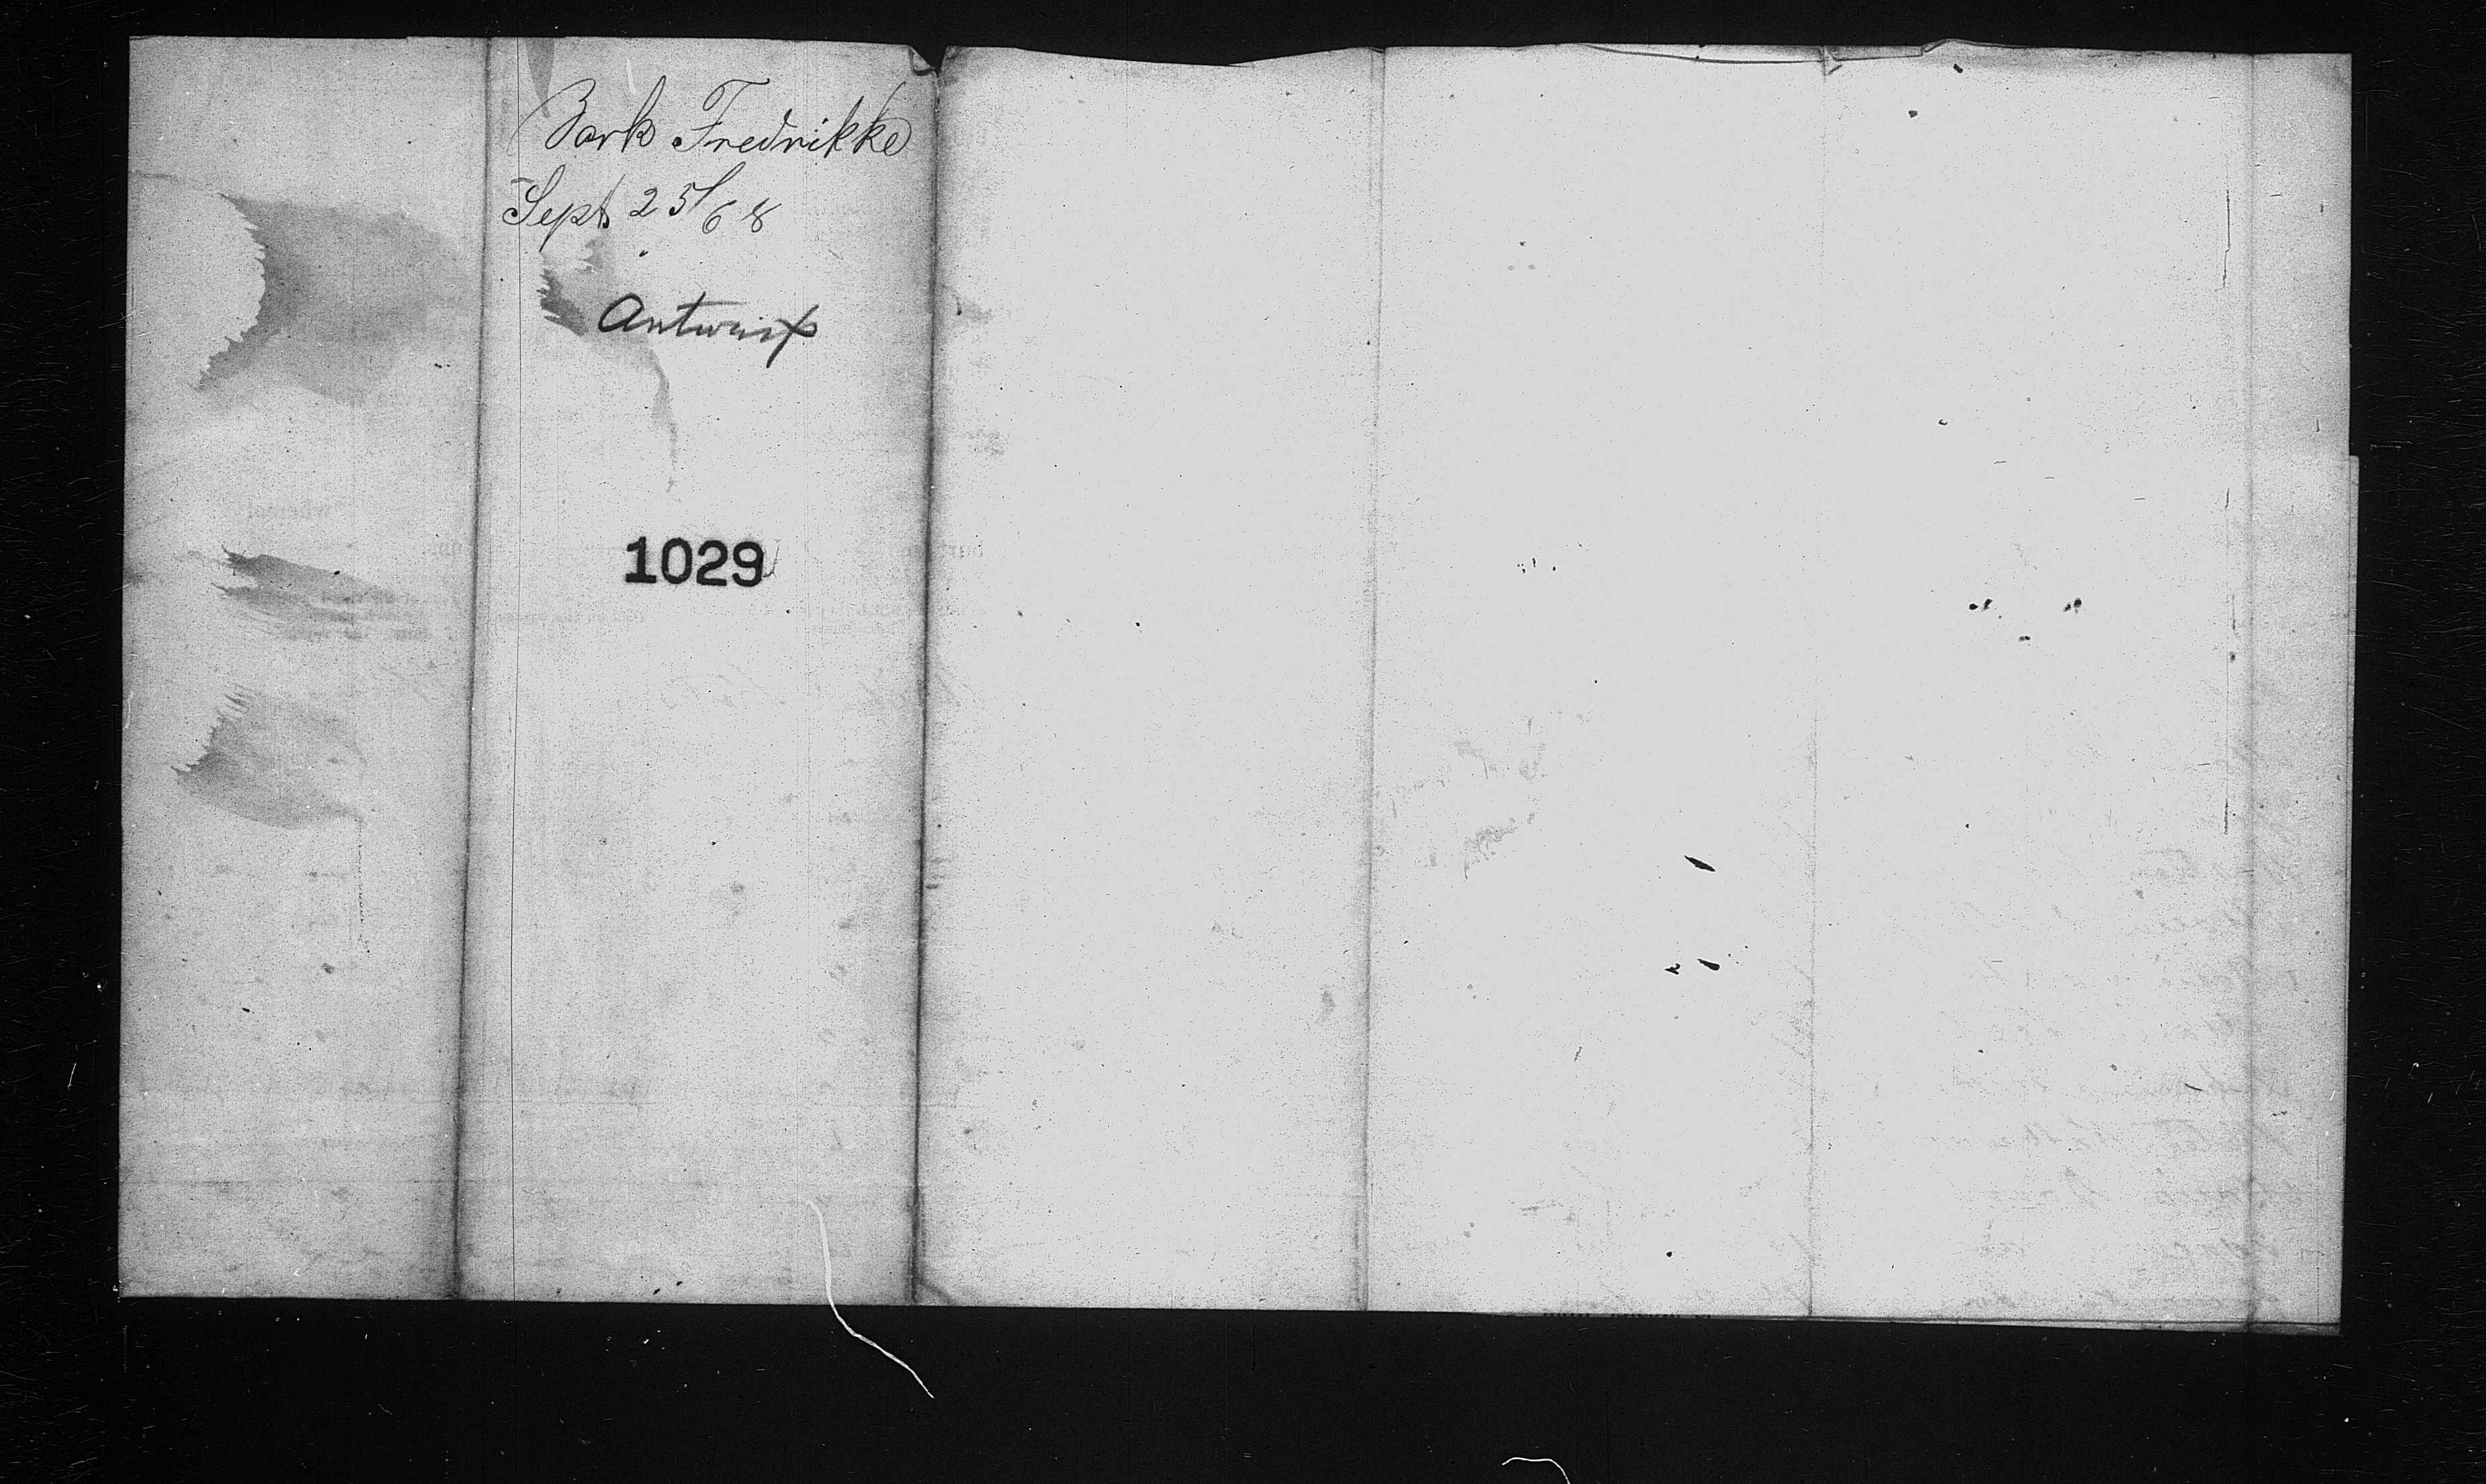 Bark Fredrikke
Sept 25/68
Antwerp
1029